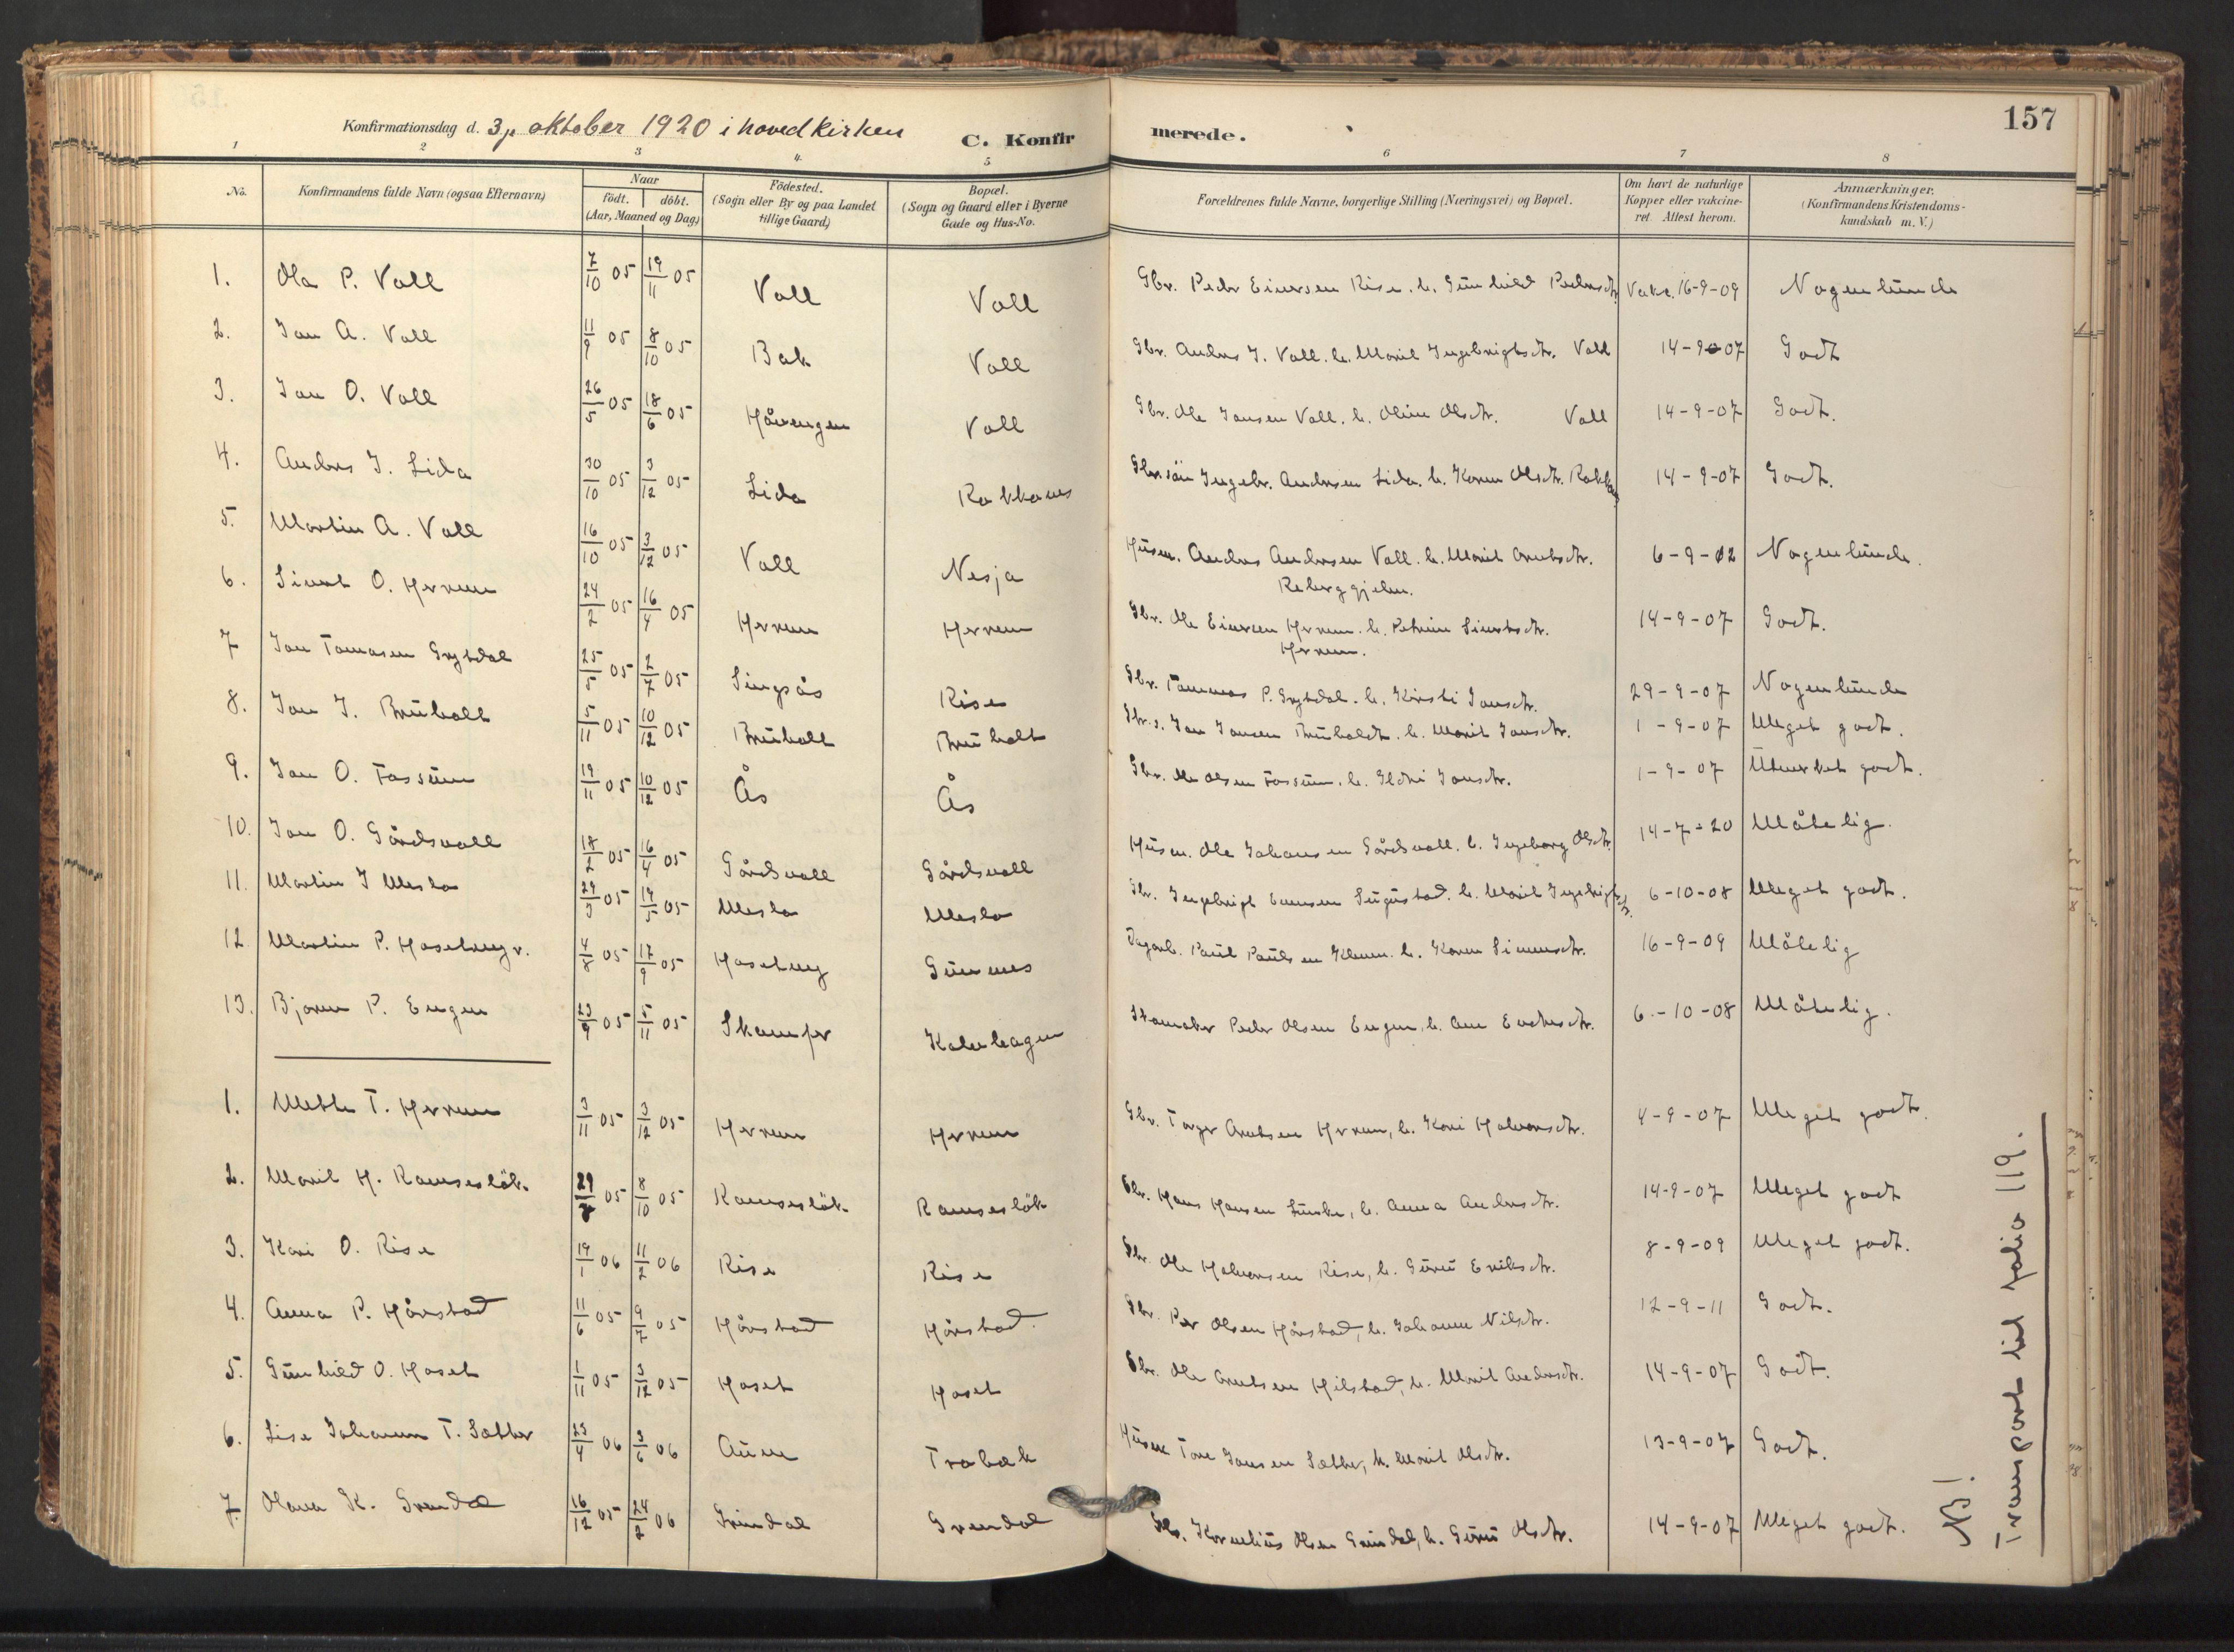 157
Konfirmationsdag d. 3, oktober 1920 i hovedkirken C. Konfirmerede.
1 2 3 4 5 6 7 8
No. Konfirmandens fulde Navn (ogsaa Efternavn) Naar født. døbt. (Aar, Maaned og Dag) Fødested. (Sogn eller By og paa Landet tillige Gaard) Bopæl. (Sogn og Gaard eller i Byerne Gade og Hus-No. Forældrenes fulde Navne, borgerlige Stilling (Næringsvei) og Bopæl. Om havt de naturlige Kopper eller vakcineret. Attest herom. Anmærkninger. (Konfirmandens Kristendomskundskab m. V.)
1. Ola P. Voll 7/10 05 19/11 05 Voll Voll Gbr. Peder Einersen Rise. h. Gunhild Pedersdtr. Vakc. 16-9-09 Nogenlunde
2. Jon A. Voll 11/9 05 8/10 05 Bak Voll Gbr. Anders J. Voll. h. Marit Ingebrigtsdtr. Voll 14-9-07 Godt
3. Jon O. Voll 26/5 05 18/6 05 Håvengen Voll Gbr. Ole Jonsen Voll. h. Oline Olsdtr. Voll 14-9-07 Godt.
4. Anders I. Lida 30/10 05 3/12 05 Lida Ingebr. Andersen Lida. h. Karen Olsdtr. 14-9-07 Godt.
5. Martin A. Voll 16/10 05 3/12 05 Voll Nesja Husm. Anders Andersen Voll. h. Marit Arntsdtr. 6-9-12 Nogenlunde.
6. Sivert O. Herrem 24/2 05 16/4 05 Herrem Herrem Gbr. Ole Einersen Herrem. h. Petrine Sivertsdtr. Herrem. 14-9-07 Godt.
7 Jon Tomasen Grytdal 25/5 05 2/7 05 Singsås Rise Gbr. Tommas P. Grytdal. h. Kirsti Jonsdtr. 29-9-07 Nogenlunde
8. Jon J. Bruholt 5/11 05 10/12 05 Bruholt Bruholt Gbr.s. Jon Jonsen Bruholdt. h. Marit Jonsdtr. 1-9-07 Meget godt.
9. Jon O. Fossum 19/11 05 10/12 05 Ås Ås Gbr. Ole Olsen Fossum. h. Eldri Jonsdtr. 1-9-07 Utmerket godt.
10. Jon O. Gårdsvoll 18/2 05 16/4 05 Gårdsvoll Gårdsvoll Husm. Ole Johansen Gårdsvoll. h. Ingeborg Olsdtr. 14-7-20 Måtelig.
11. Martin I Meslo 29/3 05 14/5 05 Meslo Meslo Gbr. Ingebrigt h. Marit Ingebrigtsdtr. 6-10-08 Meget godt.
12 Martin P. Hoset 4/8 05 17/9 05 Gunnes Dagarb. Paul Paulsen h. Karen 16-9-09 Måtelig
13. Bjarne P. Engen 23/9 05 5/11 05 Skamfer Kalvhagen Skomaker Peder Olsen Engen, h. Ane 6-10-08 Måtelig.
1. Mette T. Herrem 3/11 05 3/12 05 Herrem Herrem Gbr. Torger Arntsen Herrem, h. Kari Halvorsdtr. 4-9-07 Meget godt.
2. Marit H. Ramsesløk. 29/8 05 8/10 05 Ramsesløk. Ramsesløk Gbr. Hans Hansen h. Anna Andersdtr. 14-9-07 Meget godt
3. Kari O. Rise 19/1 06 11/2 06 Rise Rise Gbr. Ole Halvorsen Rise, h. Guru Eriksdtr. 8-9-09 Meget godt.
4. Anna P. Hårstad 11/6 05 9/7 05 Hårstad Hårstad. Gbr. Per Olsen Hårstad, h. Johanne Nilsdtr. 12-9-11 Godt.
5. Gunhild O. Hoset 1/11 05 3/12 05 Hoset Hoset Gbr. Ole Arntsen Hilstad, h. Marit Andersdtr. 14-9-07 Godt.
6. Lise Johanne T. Sæther 23/4 06 3/6 06 Aune Trøbæk Husm. Tore Jonsen Sæther, h. Marit Olsdtr. 13-9-07 Godt.
7 Olava K. Grendal 16/12 05 24/2 06 Grindal Grendal Gbr. Kornelius Olsen Grindal, h. Guru Olsdtr. 14-9-07 Meget godt.
NB!
Transport til folio 119.